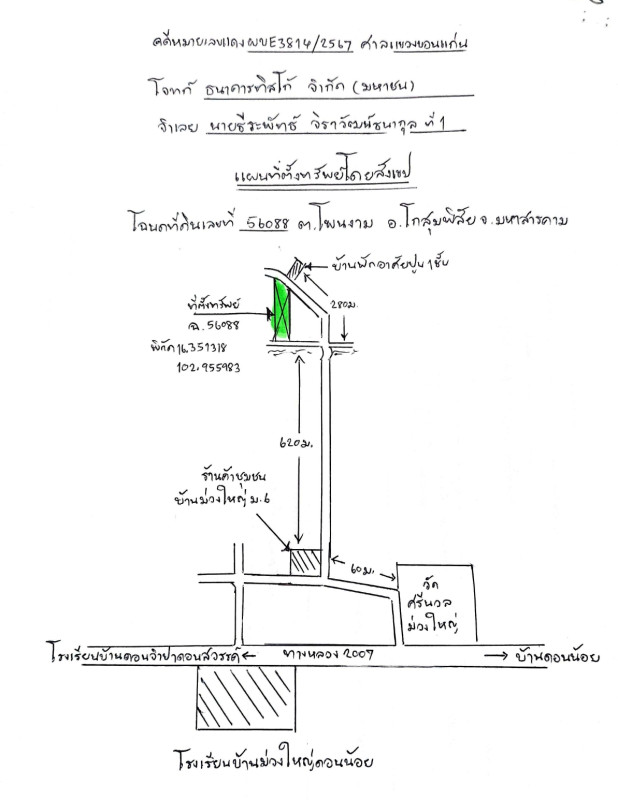 คดีหมายเลขแดง ผบE3814/2567 ศาลแขวงขอนแก่น
โจทก์ ธนาคารทิสโก้ จำกัด (มหาชน)
จำเลย นายธีระพัทธ์ จิราวัฒน์ธนากุล ที่ 1
แผนที่ตั้งทรัพย์โดยสังเขป
โฉนดที่ดินเลขที่ 56088 ต.โพนงาม อ.โกสุมพิสัย จ.มหาสารคาม
บ้านพักอาศัยปูน 1ชั้น
280ม.
ที่ตั้งทรัพย์
ฉ.56088
พิกัด 16.351318
102.955983
620ม.
ร้านค้าชุมชน
บ้านม่วงใหญ่ ม.6
60ม.
วัด
ศรีนวล
ม่วงใหญ่
โรงเรียนบ้านดอนจำปาดอนสวรรค์ ← ทางหลวง 2007 → บ้านดอนน้อย
โรงเรียนบ้านม่วงใหญ่ดอนน้อย